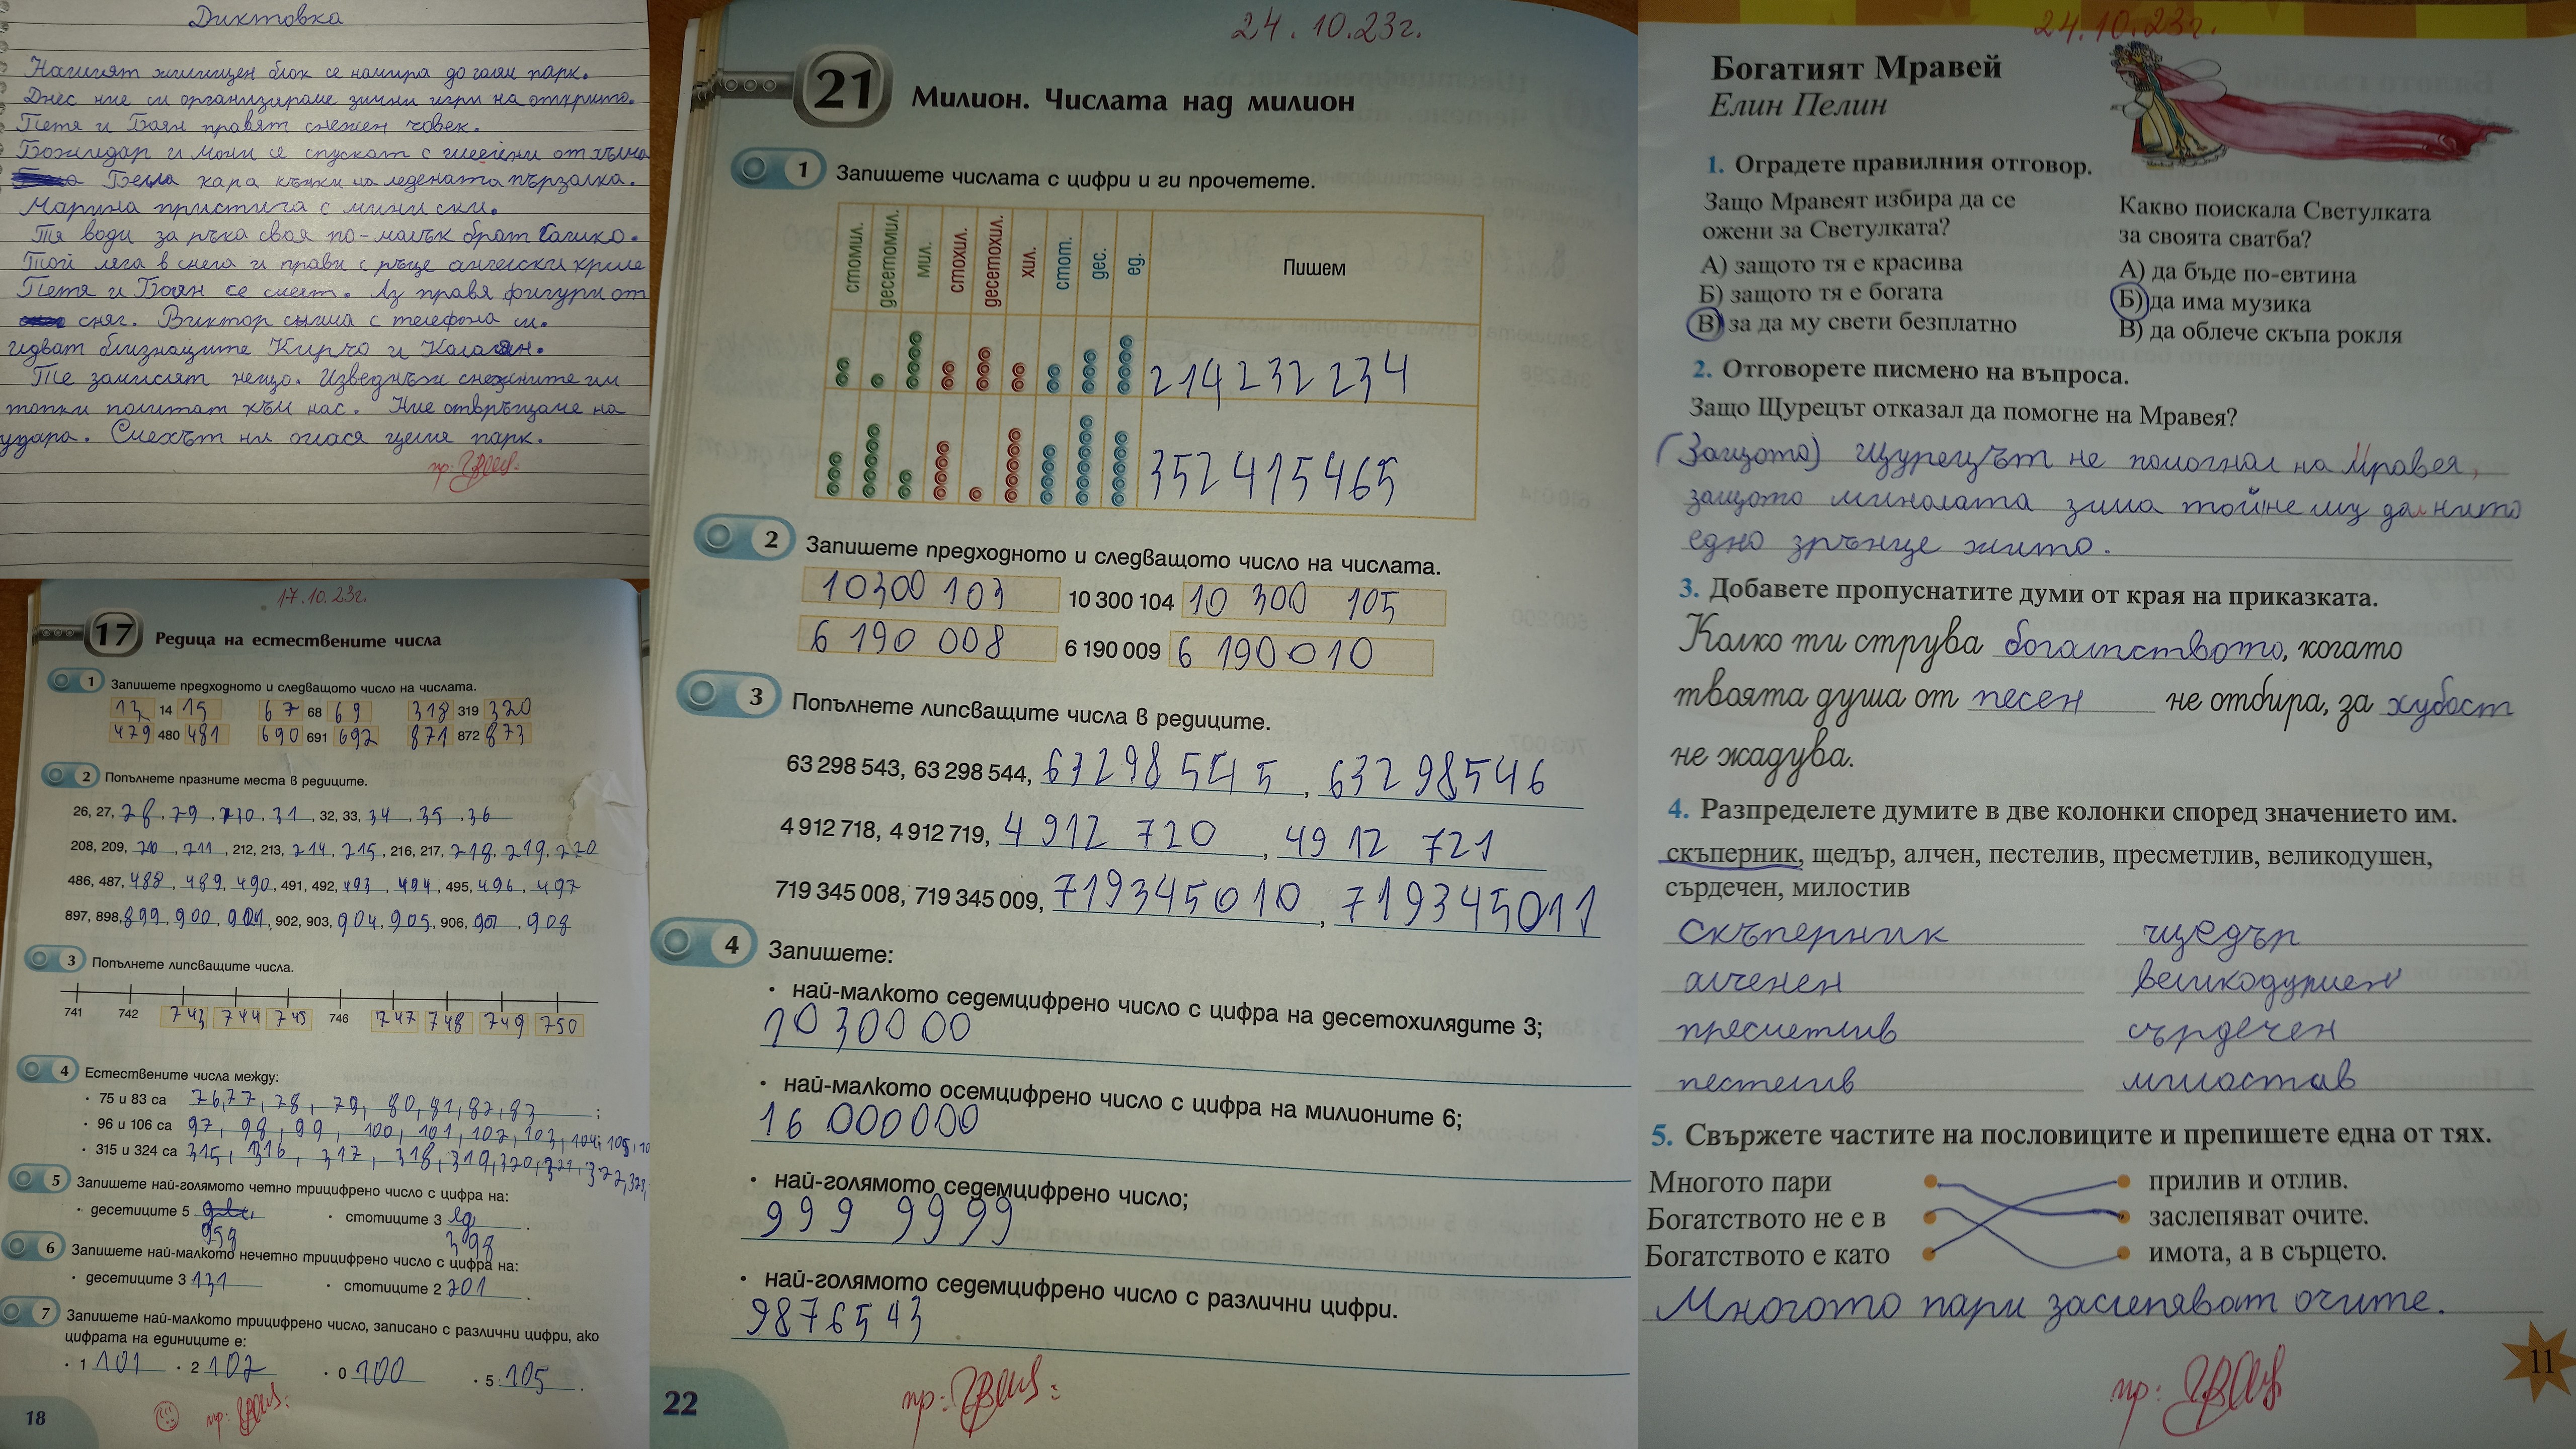 Диктовка
Нашият жилищен блок се намира до голям парк.
Днес ние си организираме зимни игри на открито.
Петя и Боян правят снежен човек.
Божидар и Мони се спускат с шейни от хълма
Бела кара кънки на ледената пързалка.
Марина пристига с мини ски.
Тя води за ръка своя по-малък брат Сашко.
Той ляга в снега и прави с ръце ангелски криле
Петя и Боян се смеят. Аз правя фигури от
сняг. Виктор снима с телефона си.
идват близнаците Кирчо и Калоян.
Те замислят нещо. Изведнъж снежните им
топки политат към нас. Ние отвръщаме на
удара. Смехът ни огласа целия парк.
пр:
17.10.23г.
17 Редица на естествените числа
1 Запишете предходното и следващото число на числата.
13 14 15 67 68 69 318 319 320
479 480 481 690 691 692 871 872 873
2 Попълнете празните места в редиците.
26, 27, 28, 29, 30, 31, 32, 33, 34, 35, 36
208, 209, 210, 211, 212, 213, 214, 215, 216, 217, 218, 219, 220
486, 487, 488, 489, 490, 491, 492, 493, 494, 495, 496, 497
897, 898, 899, 900, 901, 902, 903, 904, 905, 906, 907, 908
3 Попълнете липсващите числа.
741 742 743 744 745 746 747 748 749 750
4 Естествените числа между:
• 75 и 83 са 76, 77, 78, 79, 80, 81, 82, 83 ;
• 96 и 106 са 97, 98, 99, 100, 101, 102, 103, 104, 105, 10
• 315 и 324 са 315, 316, 317, 318, 319, 320, 321, 322, 323,
5 Запишете най-голямото четно трицифрено число с цифра на:
• десетиците 5 • стотиците 3
958 398
6 Запишете най-малкото нечетно трицифрено число с цифра на:
• десетиците 3 131 • стотиците 2 201 .
7 Запишете най-малкото трицифрено число, записано с различни цифри, ако
цифрата на единиците е:
• 1 101 • 2 102 • 0 100 • 5 105 .
пр:
18
24.10.23г.
21 Милион. Числата над милион
1 Запишете числата с цифри и ги прочетете.
стомил. десетомил. мил. стохил. десетохил. хил. стот. дес. ед. Пишем
214 232 234
352 415 465
2 Запишете предходното и следващото число на числата.
10300 103 10 300 104 10 300 105
6 190 008 6 190 009 6 190 010
3 Попълнете липсващите числа в редиците.
63 298 543, 63 298 544, 63298 545, 63298546
4 912 718, 4 912 719, 4 912 720, 49 12 721
719 345 008, 719 345 009, 719345010, 719345011
4 Запишете:
• най-малкото седемцифрено число с цифра на десетохилядите 3;
1030000
• най-малкото осемцифрено число с цифра на милионите 6;
16 000000
• най-голямото седемцифрено число;
999 9999
• най-голямото седемцифрено число с различни цифри.
9876543
пр:
22
24.10.23г.
Богатият Мравей
Елин Пелин
1. Оградете правилния отговор.
Защо Мравеят избира да се
ожени за Светулката?
А) защото тя е красива
Б) защото тя е богата
В) за да му свети безплатно
Какво поискала Светулката
за своята сватба?
А) да бъде по-евтина
Б) да има музика
В) да облече скъпа рокля
2. Отговорете писмено на въпроса.
Защо Щурецът отказал да помогне на Мравея?
(Защото) Щурецът не помогнал на Мравея,
защото миналата зима той не му дал нито
едно зрънце жито.
3. Добавете пропуснатите думи от края на приказката.
Колко ти струва богатството, когато
твоята душа от песен не отбира, за хубост
не жадува.
4. Разпределете думите в две колонки според значението им.
скъперник, щедър, алчен, пестелив, пресметлив, великодушен,
сърдечен, милостив
скъперник щедър
алченен великодушен
пресметлив сърдечен
пестелив милостав
5. Свържете частите на пословиците и препишете една от тях.
Многото пари прилив и отлив.
Богатството не е в заслепяват очите.
Богатството е като имота, а в сърцето.
Многото пари заслепяват очите.
пр:
11